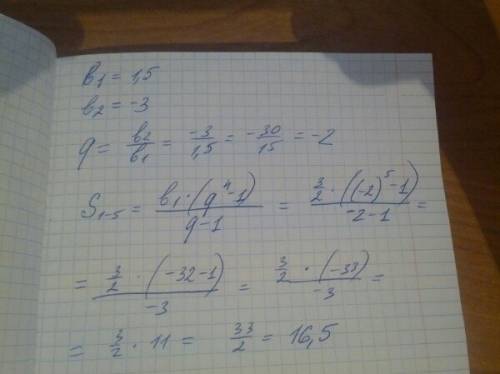 b₁ = 1,5
b₂ = -3
q = b₂/b₁ = -3/1,5 = -30/15 = -2
S₁₋₅ = b₁·(qⁿ-1)/q-1 = 3/2·((-2)⁵-1)/-2-1 =
= 3/2·(-32-1)/-3 = 3/2·(-33)/-3 =
= 3/2·11 = 33/2 = 16,5